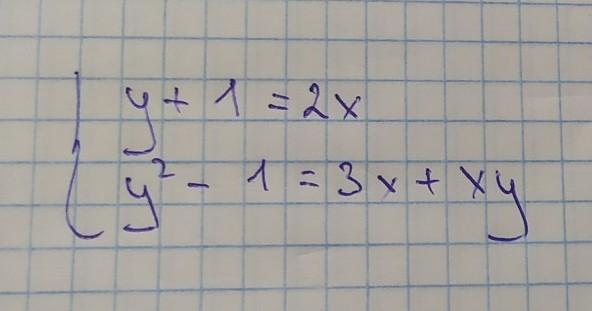 y + 1 = 2x
y² - 1 = 3x + xy